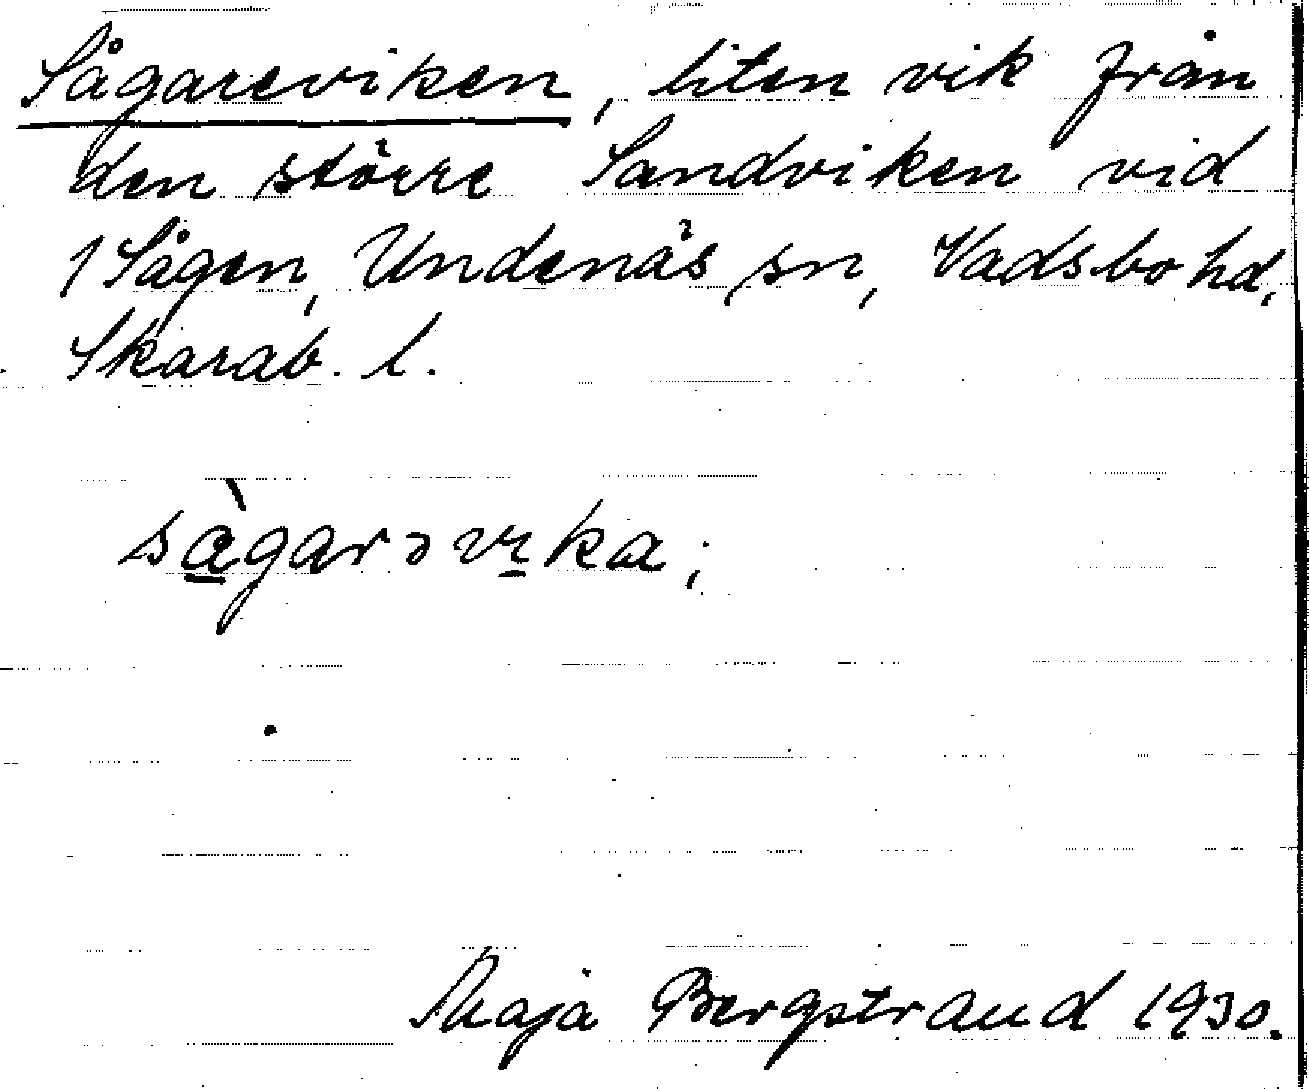 Sågareviken, liten vik från
den större Sandviken vid
1 Sågen, Undenäs sn, Vadsbo hd,
Skarab. l.
sàgarəvıka;
Maja Bergstrand 1930.